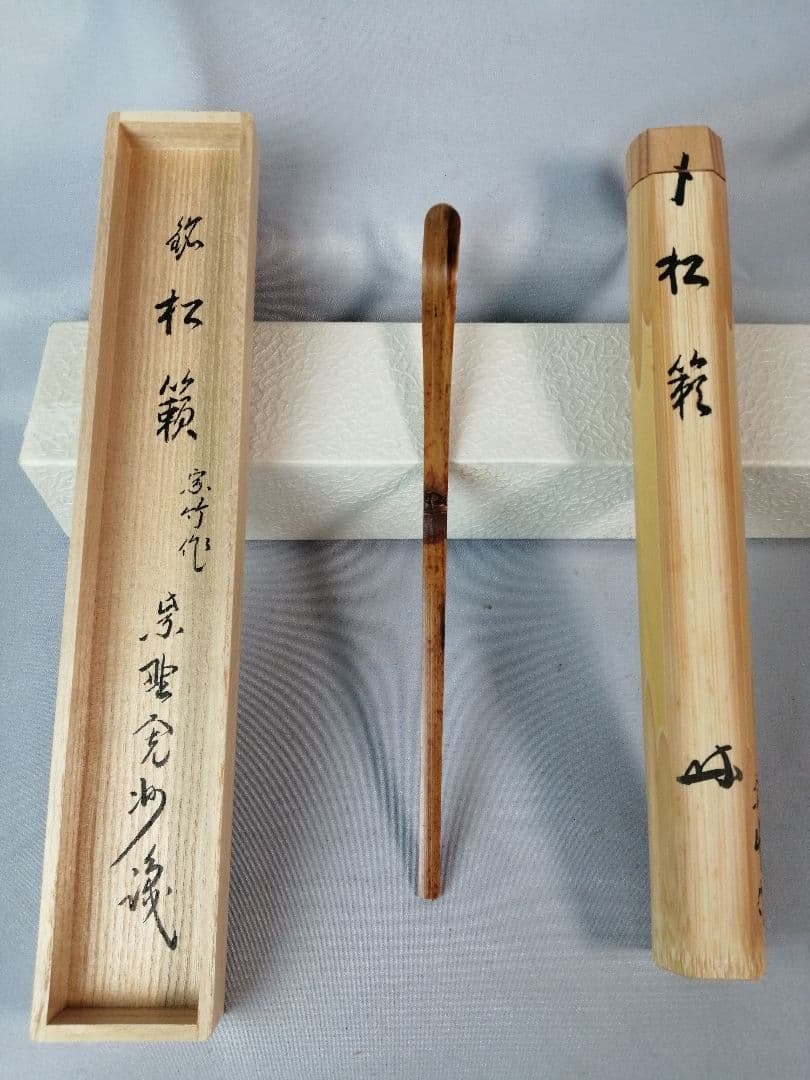 銘
松籟
宗竹作
紫野寛州識
松籟